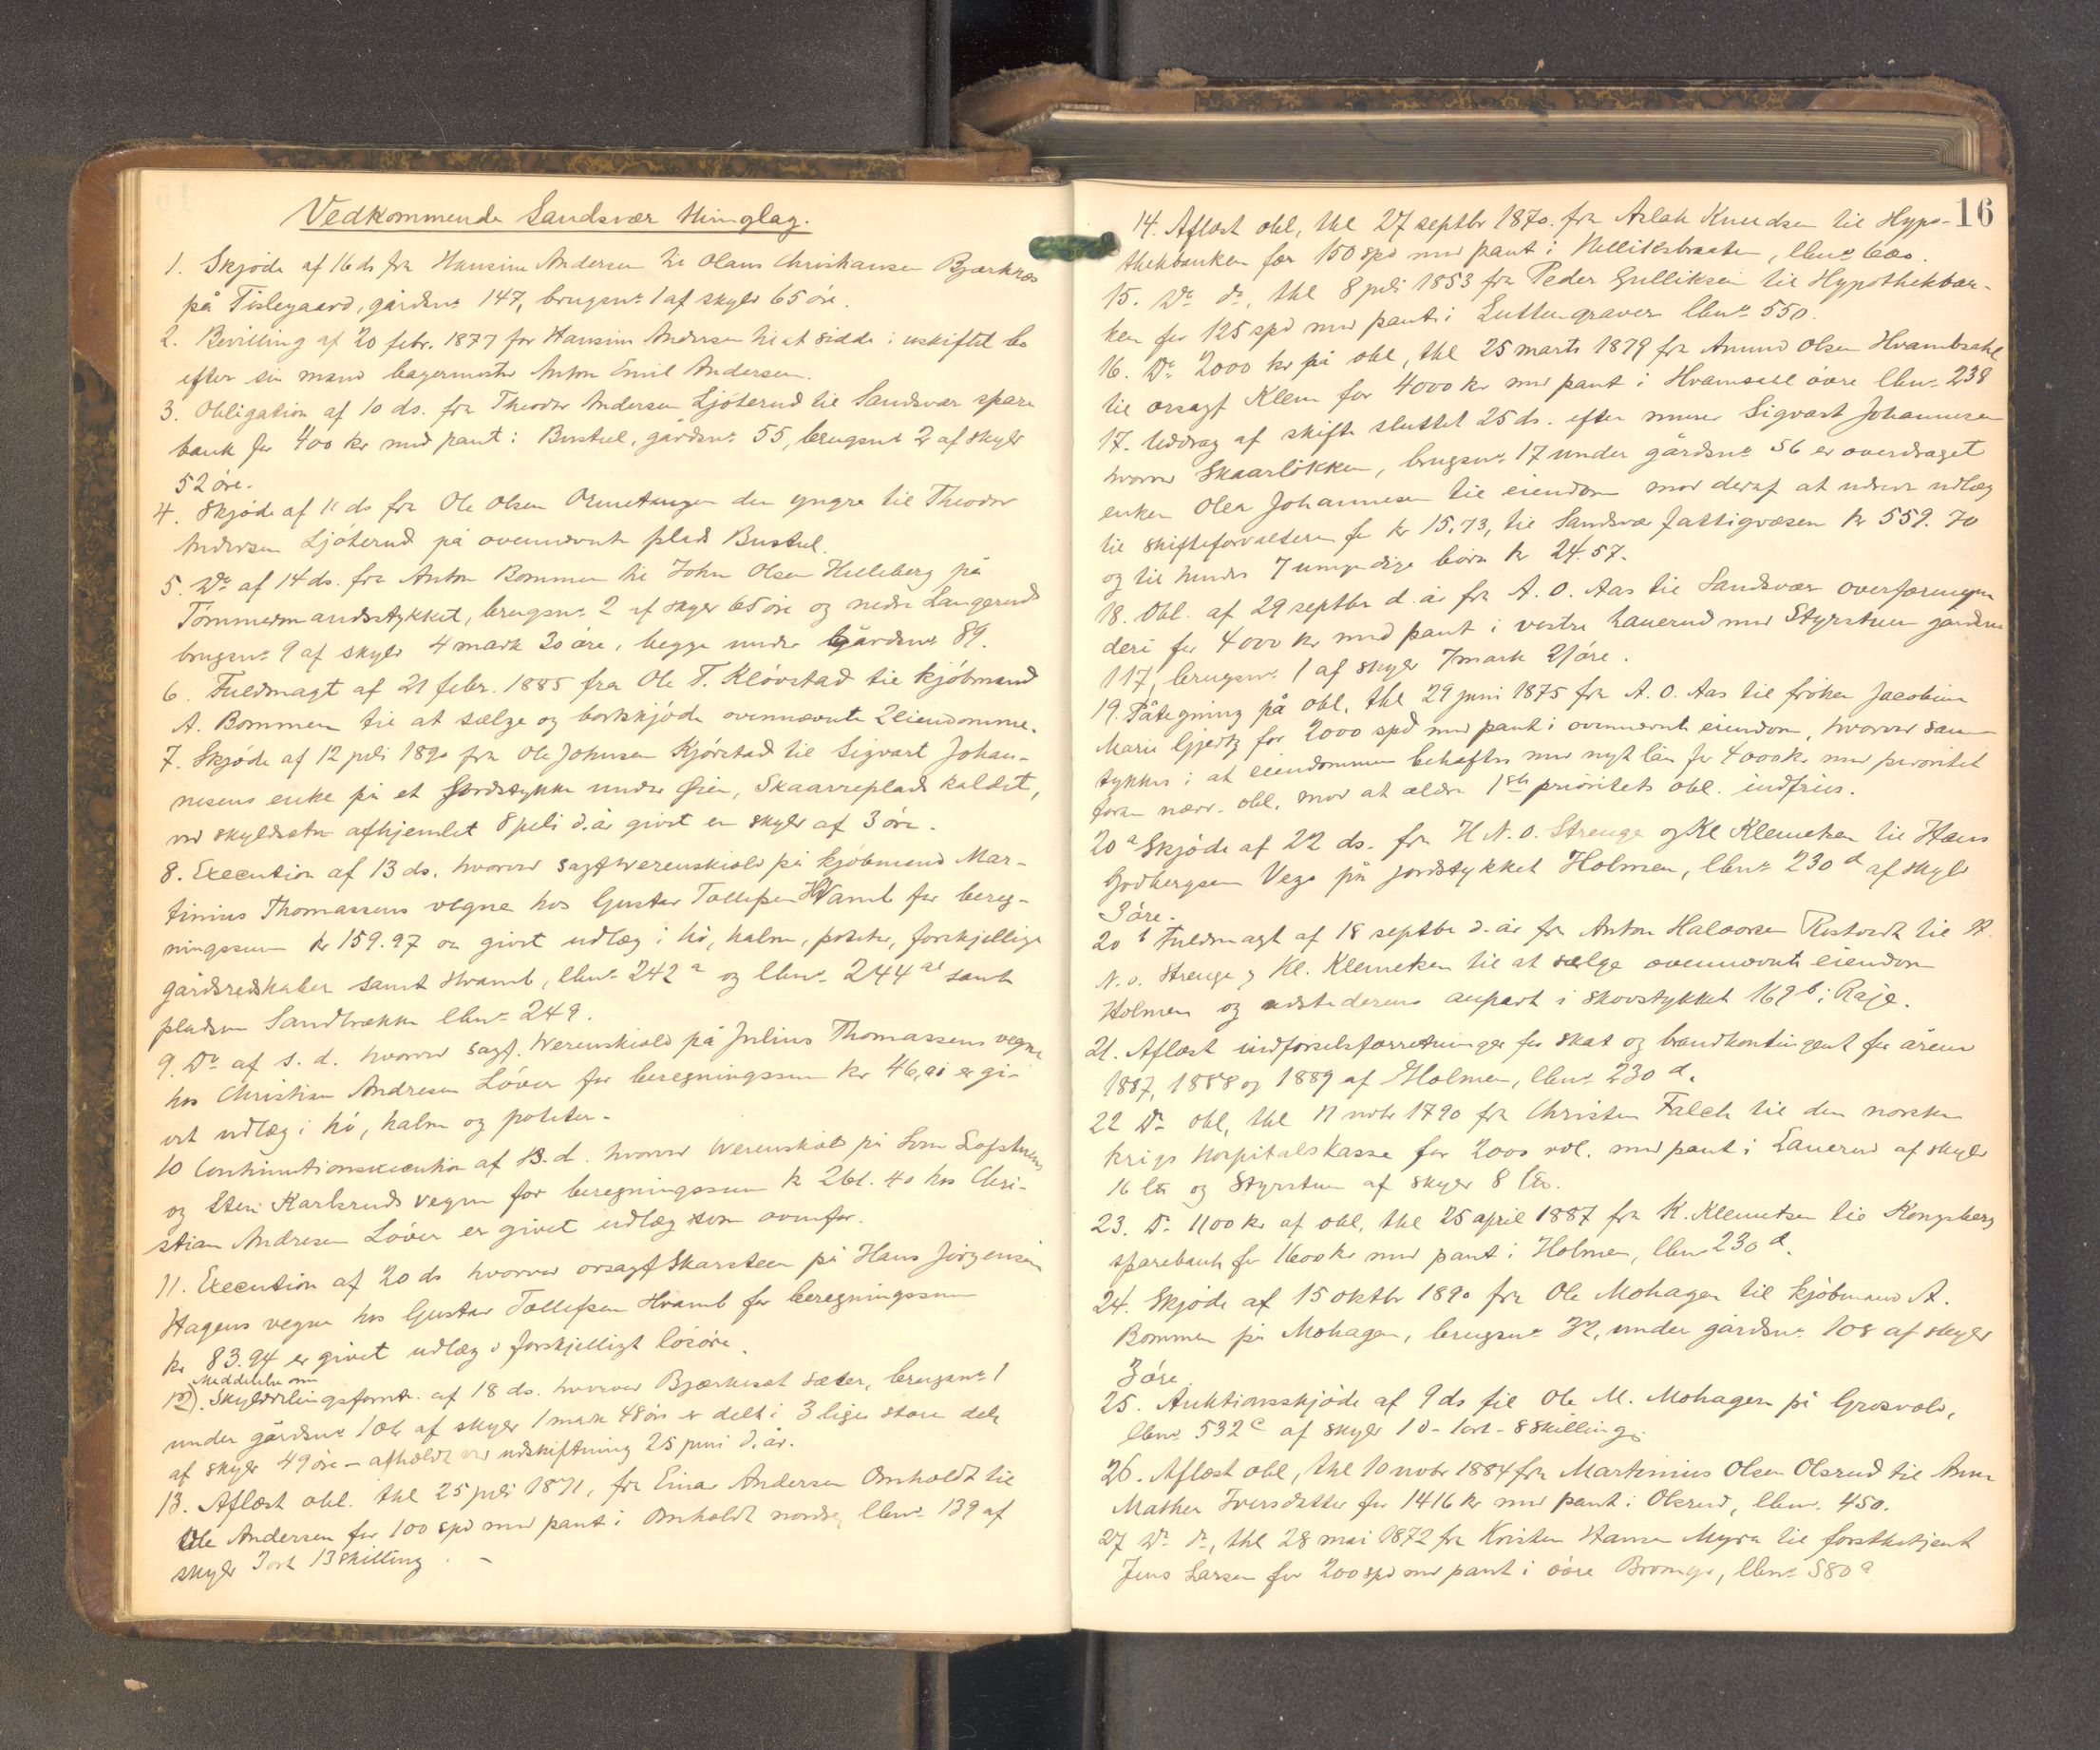 Vedkommende Sandsvær thinglag.
1. Skjøde af 16 ds fra Hansine Andersen til Olaus Christiansen Bjærknæs
på Tislegaard, gårdsno 147, brugsno 1 af skyld 65 øre.
2. Bevilling af 20 febr. 1877 for Hansine Andersen til at sidde i uskiftet bo
efter sin mand bagermester Anton Emil Andersen.
3. Obligation af 10 ds. fra Theodor Andersen Ljøterud til Sandsvær spare
bank for 400 kr med pant i Bustul, gårdsno 55, brugsno 2 af skyld
52 øre.
4. Skjøde af 11 ds fra Ole Olsen Ormetangen den yngre til Theodor
Andersen Ljøterud på ovennævnte plads Bustul.
5. Do af 14 ds. fra Anton Bommen til John Olsen Helleberg på
Tømmermandsstykket, brugsno 2 af skyld 65 øre og nedre Langerud
brugsno 9 af skyld 4 mark 20 øre, begge under gårdsno 89.
6. Fuldmagt af 21 febr. 1885 fra Ole T. Kløvstad til kjøbmand
A. Bommen til at sælge og bortskjøde ovennævnte 2 eiendomme.
7. Skjøde af 12 juli 1890 fra Ole Johnsen Kjørstad til Sigvart Johan-
nesens enke på et jordstykke under Øien, Skaarreplads kaldet,
ved skyldsætn afhjemlet 8 juli d. år givet en skyld af 3 øre.
8. Execution af 13 ds. hvorved sagf Werenskiold på kjøbmand Mar-
tinius Thomassens vegne hos Gustav Tollefsen Hvamb for bereg-
ningssum kr 159.97 er givet udlæg i hø, halm, poteter, forskjellige
gårdsredskaber samt Hvamb, lbno 242 a og lbno 244 a1 samt
pladsen Sandbrække lbno 249.
9. Do af s. d. hvorved sagf. Werenskiold på Julius Thomassens vegne
hos Christian Andresen Løver for beregningssum kr 46,01 er gi-
vet udlæg i hø, halm og poteter.
10 Continuationsexecution af 13. d. hvorved Werenskiold på Lorn Lofstuens
og Sten Karlsruds vegne for beregningssum kr 261.40 hos Chri-
stian Andresen Løver er givet udlæg som ovenfor.
11. Execution af 20 ds hvorved orsagf Skarsteen på Hans Jørgensen
Hagens vegne hos Gustav Tollefsen Hvamb for beregningssum
kr 83.94 er givet udlæg i forskjelligt løsøre.
Meddelelse om
12). Skylddelingsforretn. af 18 ds. hvorved Bjærkeset sæter, brugsno 1
under gårdsno 106 af skyld 1 mark 48 øre er delt i 3 lige store dele
af skyld 49 øre – afholdt ved udskiftning 25 juni d. år.
13. Aflæst obl. thl 25 juli 1871, fra Einar Andersen Omholdt til
Ole Andersen for 100 spd med pant i Omholdt nordre, lbno 139 af
skyld 3 ort 13 skilling. –
16
14. Aflæst obl, thl 27 septbr 1870. fra Aslak Knudsen til Hypo-
thekbanken for 150 spd med pant i Nelliksbraaten, lbno 620.
15. Do do, thl 8 juli 1853 fra Peder Gulliksen til Hypothekban-
ken for 125 spd med pant i Luttengraven lbno 550.
16. Do 2000 kr på obl, thl 25 marts 1879 fra Amund Olsen Hvambsahl
til orsagf Klem for 4000 kr med pant i Hvamsahl øvre lbno 238
17. Uddrag af skifte sluttet 25 ds. efter murer Sigvart Johannesen
hvorved Skaarløkken, brugsno 17 under gårdsno 56 er overdraget
enken Olea Johannesen til eiendom mod deraf at udrede udlæg
til skifteforvalteren for kr 15,73, til Sandsvær fattigvæsen kr 559.70
og til hendes 7 umyndige børn kr 24.57.
18. Obl. af 29 septbr d. år fra A. O. Aas til Sandsvær overformyn
deri for 4000 kr med pant i vestre Lauerud med Styrstuen gårdsno
117, brugsno 1 af skyld 7 mark 21 øre.
19. Påtegning på obl, thl 29 juni 1875 fra A. O. Aas til frøken Jacobine
Marie Gjertz for 2000 spd med pant i ovennævnte eiendom, hvorved sam-
tykkes i at eiendommen behæftes med nyt lån for 4000 kr med prioritet
foran nævn. obl, mod at ældre 1ste prioritets obl. indfries.
20 a Skjøde af 22 ds. fra H. N. O. Strenge og Kl Klemetsen til Hans
Godbergsen Vego på jordstykket Holmen, lbno 230 d af skyld
3 øre.
20 b Fuldmagt af 18 septbr d. år fra Anton Halvorsen Rostvedt til H.
N. O. Strenge og Kl. Klemetsen til at sælge ovennævnte eiendom
Holmen og udstederens anpart i skovstykket 169 b i Raje.
21. Aflæst indførselsforretninger for skat og brandkontingent for årene
1887, 1888 og 1889 af Holmen, lbno 230 d.
22 Do obl, thl 11 novbr 1790 fra Christen Falch til den norske
krigs hospitalskasse for 2000 rdl. med pant i Lauerud af skyld
16 l℔ og Styrstuen af skyld 8 l℔.
23. Do 1100 kr af obl, thl 25 april 1887 fra K. Klemetsen til Kongsberg
sparebank for 1600 kr med pant i Holmen, lbno 230 d.
24. Skjøde af 15 oktbr 1890 fra Ole Mohagen til kjøbmand A.
Bommen på Mohagen, brugsno 32, under gårdsno 108 af skyld
3 øre.
25. Auktionsskjøde af 9 ds til Ole M. Mohagen på Grosvold,
lbno 532 c af skyld 1 d – 1 ort – 8 skilling.
26. Aflæst obl, thl 10 novbr 1884 fra Martinius Olsen Olsrud til Anne
Mathea Iversdatter for 1416 kr med pant i Olsrud, lbno. 450.
27 Do do, thl 28 mai 1872 fra Kristen Hansen Myra til forstbetjent
Jens Larsen for 200 spd med pant i øvre Bromyr, lbno 580 a